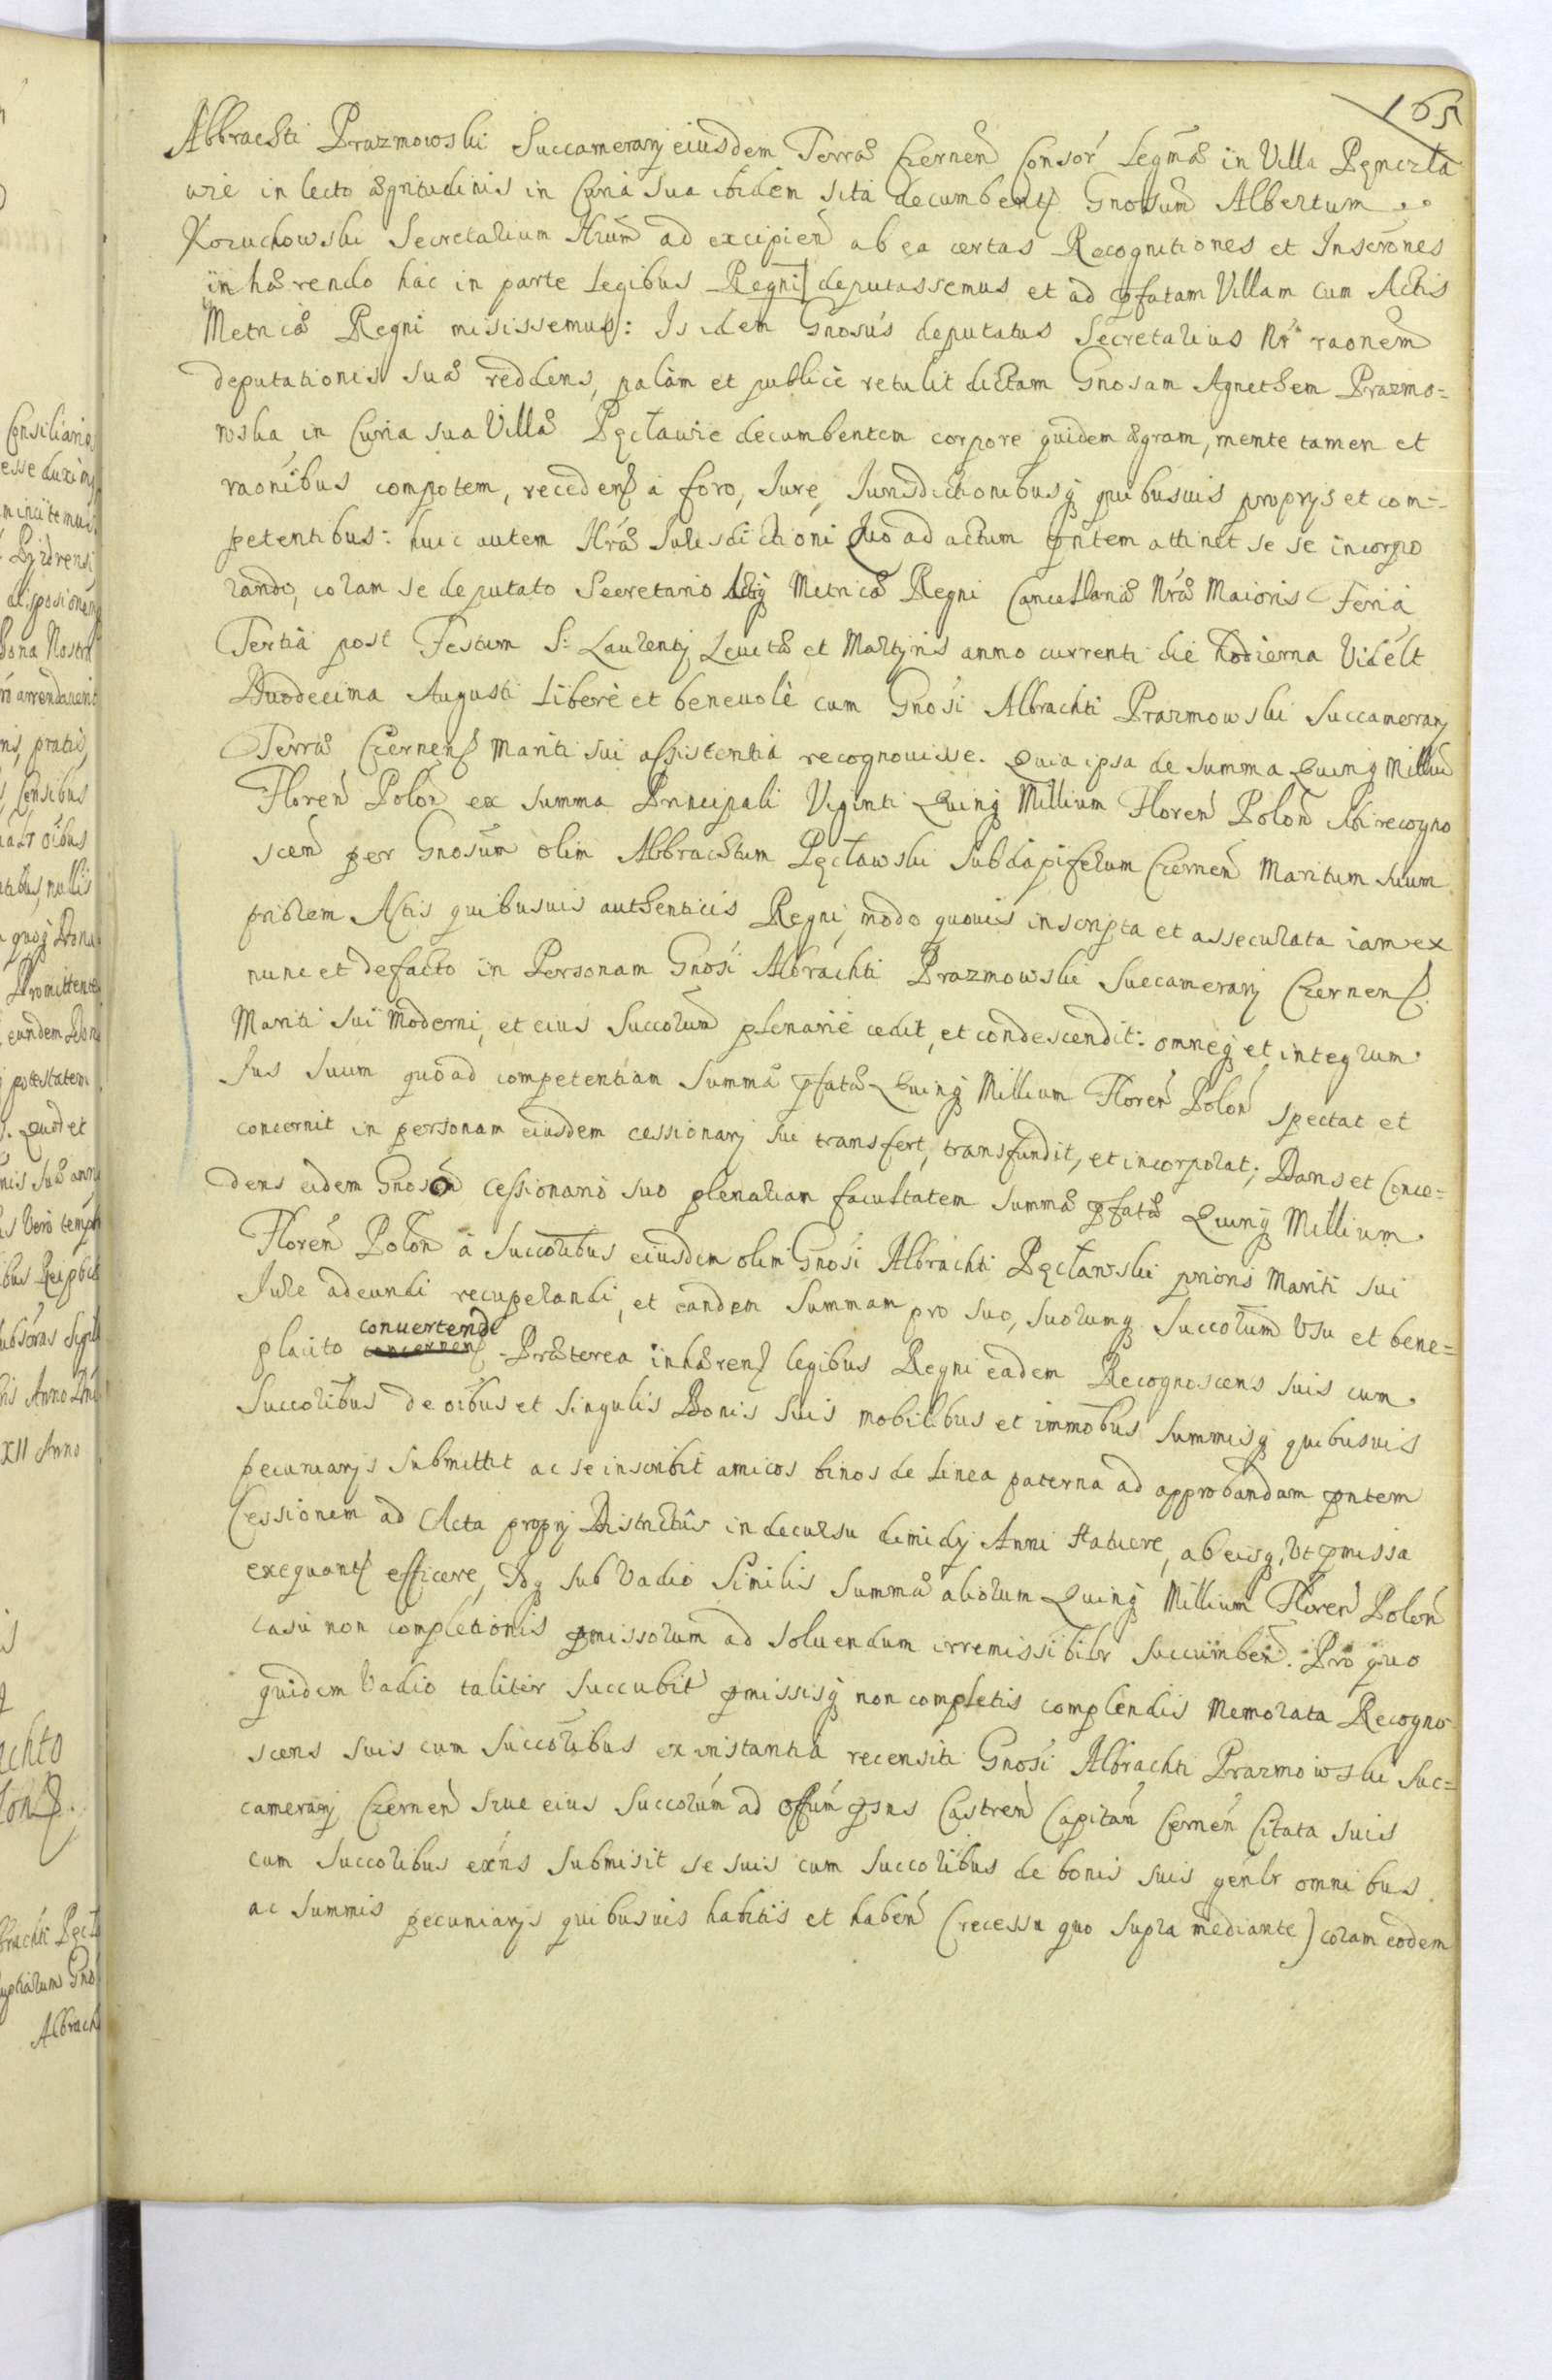 165
Albrachti Prazmowski Succamerarij eiusdem Terræ Czernen Consor Legmæ in Villa Pęnczła
wie in lecto ægritudinis in Curia sua ibidem sita decumbentis Gnosum Albertum
Kozuchowski Secretarium Nrum ad excipien ab ea certas Recognitiones et Inscrones
inhærendo hac in parte Legibus Regni deputassemus et ad pfatam Villam cum Actis
Metricæ Regni misissemus: Is idem Gnosus deputatus Secretarius Nr raonem
deputationis suæ reddens, palàm et publicè retulit dictam Gnosam Agnethem Prazmo=
wska in Curia sua Villæ Pęcławie decumbentem corpore quidem ægram, mente tamen et
raonibus compotem, recedens a foro, Iure, Iurisdictionibusq quibusuis proprijs et com=
petentibus: huic autem Nræ Iurisdictioni Quo ad actum pntem attinet se se incorpo
rando, coram se deputato Secretario Actisq Metricæ Regni Cancellariæ Nræ Maioris Feria
Tertia post Festum S: Laurentij Leuitæ et Martyris anno currenti die hodierna Videlt
Duodecima Augusti Liberè et beneuolè cum Gnosi Albrachti Prazmowski Succamerarij
Terræ Czernens Mariti sui assistentia recognouisse. Quia ipsa de summa Quinq Millium
Floren Polon ex summa Principali Viginti Quinq Millium Floren Polon sibi recogno
scen per Gnosum olim Albrachtum Pęcławski Subdapiferum Czernen Maritum suum
priorem Actis quibusuis authenticis Regni modo quouis inscripta et assecurata iam ex
nunc et defacto in Personam Gnosi Albrachti Prazmowski Succamerarij Czernens
Mariti sui Moderni, et eius Succorum plenariè cedit, et condescendit: omneq et integrum
Ius suum quoad competentiam Summæ pfatæ Quinq Millium Floren Polon spectat et
concernit in personam eiusdem cessionarij sui transfert, transfundit, et incorporat; Dans et Conce=
dens eidem Gnoso Cessionario suo plenariam facultatem summæ pfatæ Quinq Millium
Floren Polon à Succoribus eiusdem olim Gnosi Albrachti Pęcławski prioris Mariti sui
Iure adeundi recuperandi, et eandem Summam pro suo, suorumq Succorum Vsu et bene=
placito convertendi Præterea inhærens legibus Regni eadem Recognoscens suis cum
Succoribus de oibus et singulis Bonis suis mobilibus et immobus Summisq quibusuis
pecuniarijs submittit ac se inscribit amicos binos de Linea paterna ad approbandam pntem
Cessionem ad Acta proprij Districtûs in decursu dimidij Anni statuere, ab eisq, Vt pmissa
exequants efficere, Idq sub Vadio Similis Summæ aliorum Quinq Millium Floren Polon
casu non completionis pmissorum ad soluendum irremissibilr succumben. Pro quo
quidem Vadio taliter succubit pmissisq non completis complendis Memorata Recogno
scens suis cum Succoribus ex instantia recensiti Gnosi Albrachti Prazmowski Suc=
camerarij Czernen siue eius Succorum ad Offum psns Castren Capitan Cernen Citata suis
cum Succoribus exns submisit se suis cum Succoribus de bonis suis genlr omnibus
ac Summis pecuniarijs quibusuis habitis et haben (recessu quo supra mediante) coram eodem